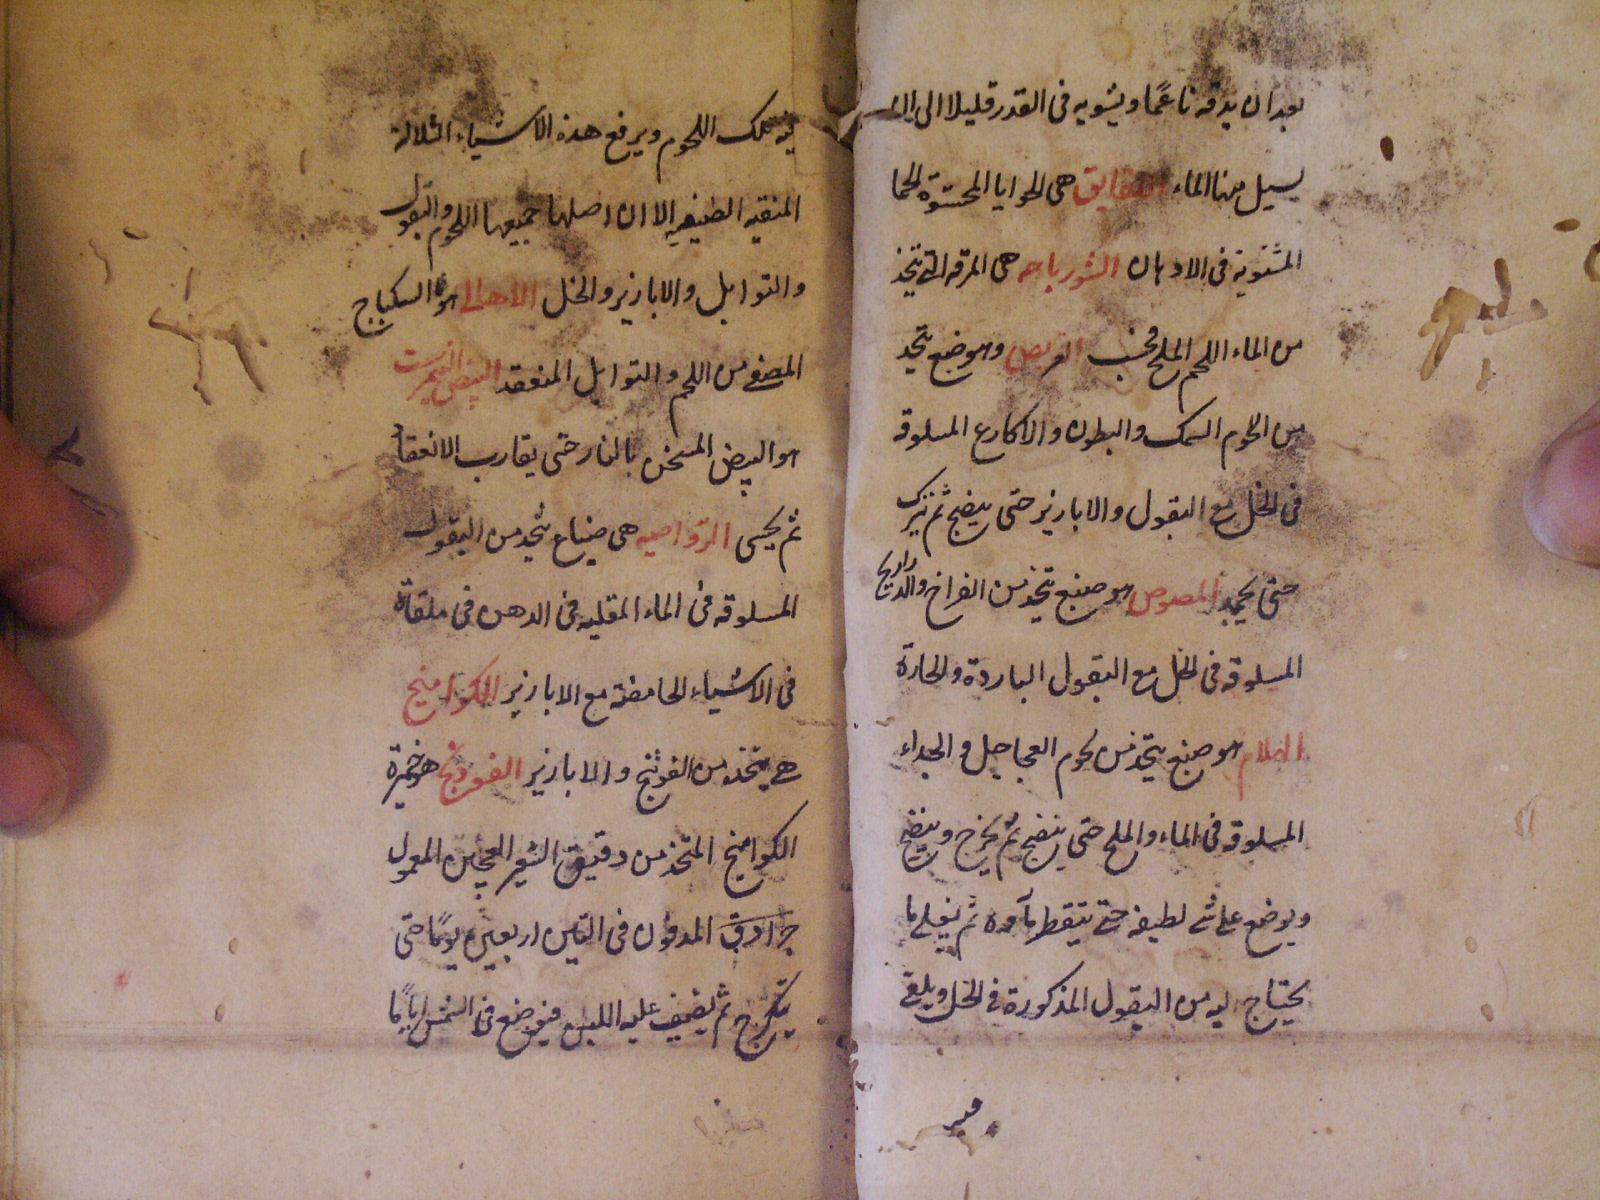 بعد ان يدقه ناعمًا ويشويه فى القدر قليلا الى ان
يسيل منها الماء النقايق هى الحوايا المحشوة لحما
المشوية فى الادهان الشورباجه هى المرقه التى تتخذ
من الماء اللحم الملح فحسب القريص وهو صنع يتخذ
من لحوم السمك والبطون والاكارع المسلوقه
فى الخل مع البقول والابازير حتى ينضج ثم تترك
حتى يجمد المصوص هو صنع يتخذ من الفراخ والدراريج
المسلوقه فى الخل مع البقول الباردة والحارة
الهلام هو صنع يتخذ من لحوم العجاجيل والجداء
المسلوقه فى الماء والملح حتى ينضج ثم يخرج وينضج
ويوضع على شى لطيفه حتى يتقطر ماؤه ثم يغلى ما
يحتاج اليه من البقول المذكورة فى الخل ويلقى
فيه
فيه تلك اللحوم ويرفع هذه الاشياء الثلاثة
المنقيه اللطيفه الا ان اصلها جميعها اللحوم والبقول
والتوابل والابازير والخل الاهالى هو السكباج
المصفى من اللحم والتوابل المنعقد البيض النيمرشت
هو البيض المسخن بالنار حتى يقارب الانعقاد
ثم يحسى الرواصيه هى صناع تتخذ من البقول
المسلوقه فى الماء المقليه فى الدهن فى ملقاة
فى الاشياء الحامضة مع الابازير الكوامخ
هى يتخذ من الفوذنج والابازير الفوذنج هو خميرة
الكوامخ المتخذ من دقيق الشعير العجين المعمول
جرادق المدفون فى التبن اربعين يومًا حتى
يتكرج ثم يضيف عليه اللبن فيوضع فى الشمس ايامًا